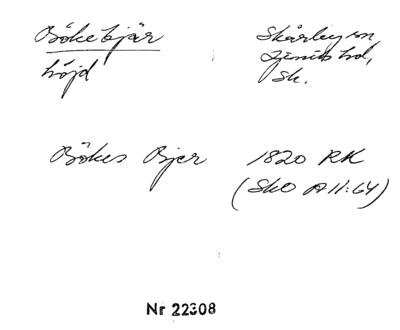 Bökebjär
höjd
Skårby sn
Ljunits hd,
Sk.
Bökes Bjer
1820 RK
(SkO A II:64)
Nr 22308